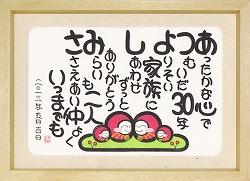 あったかな心で
つむいだ30年
よりそい
家族に
しあわせ
ずっと
ありがとう
みらいも二人
ささえあい仲よく
いつまでも
二〇一三年五月吉日